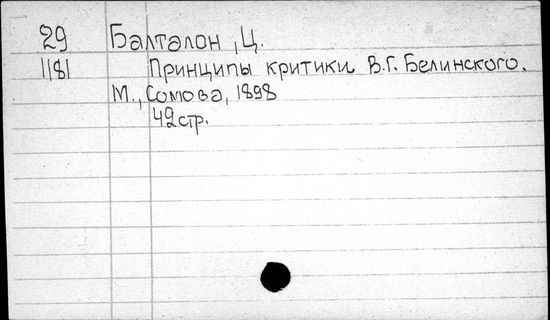 29 Балталон, Ц.
1181 Принципы критики В.Г. Белинского.
М., Сомова, 1898
42 стр.